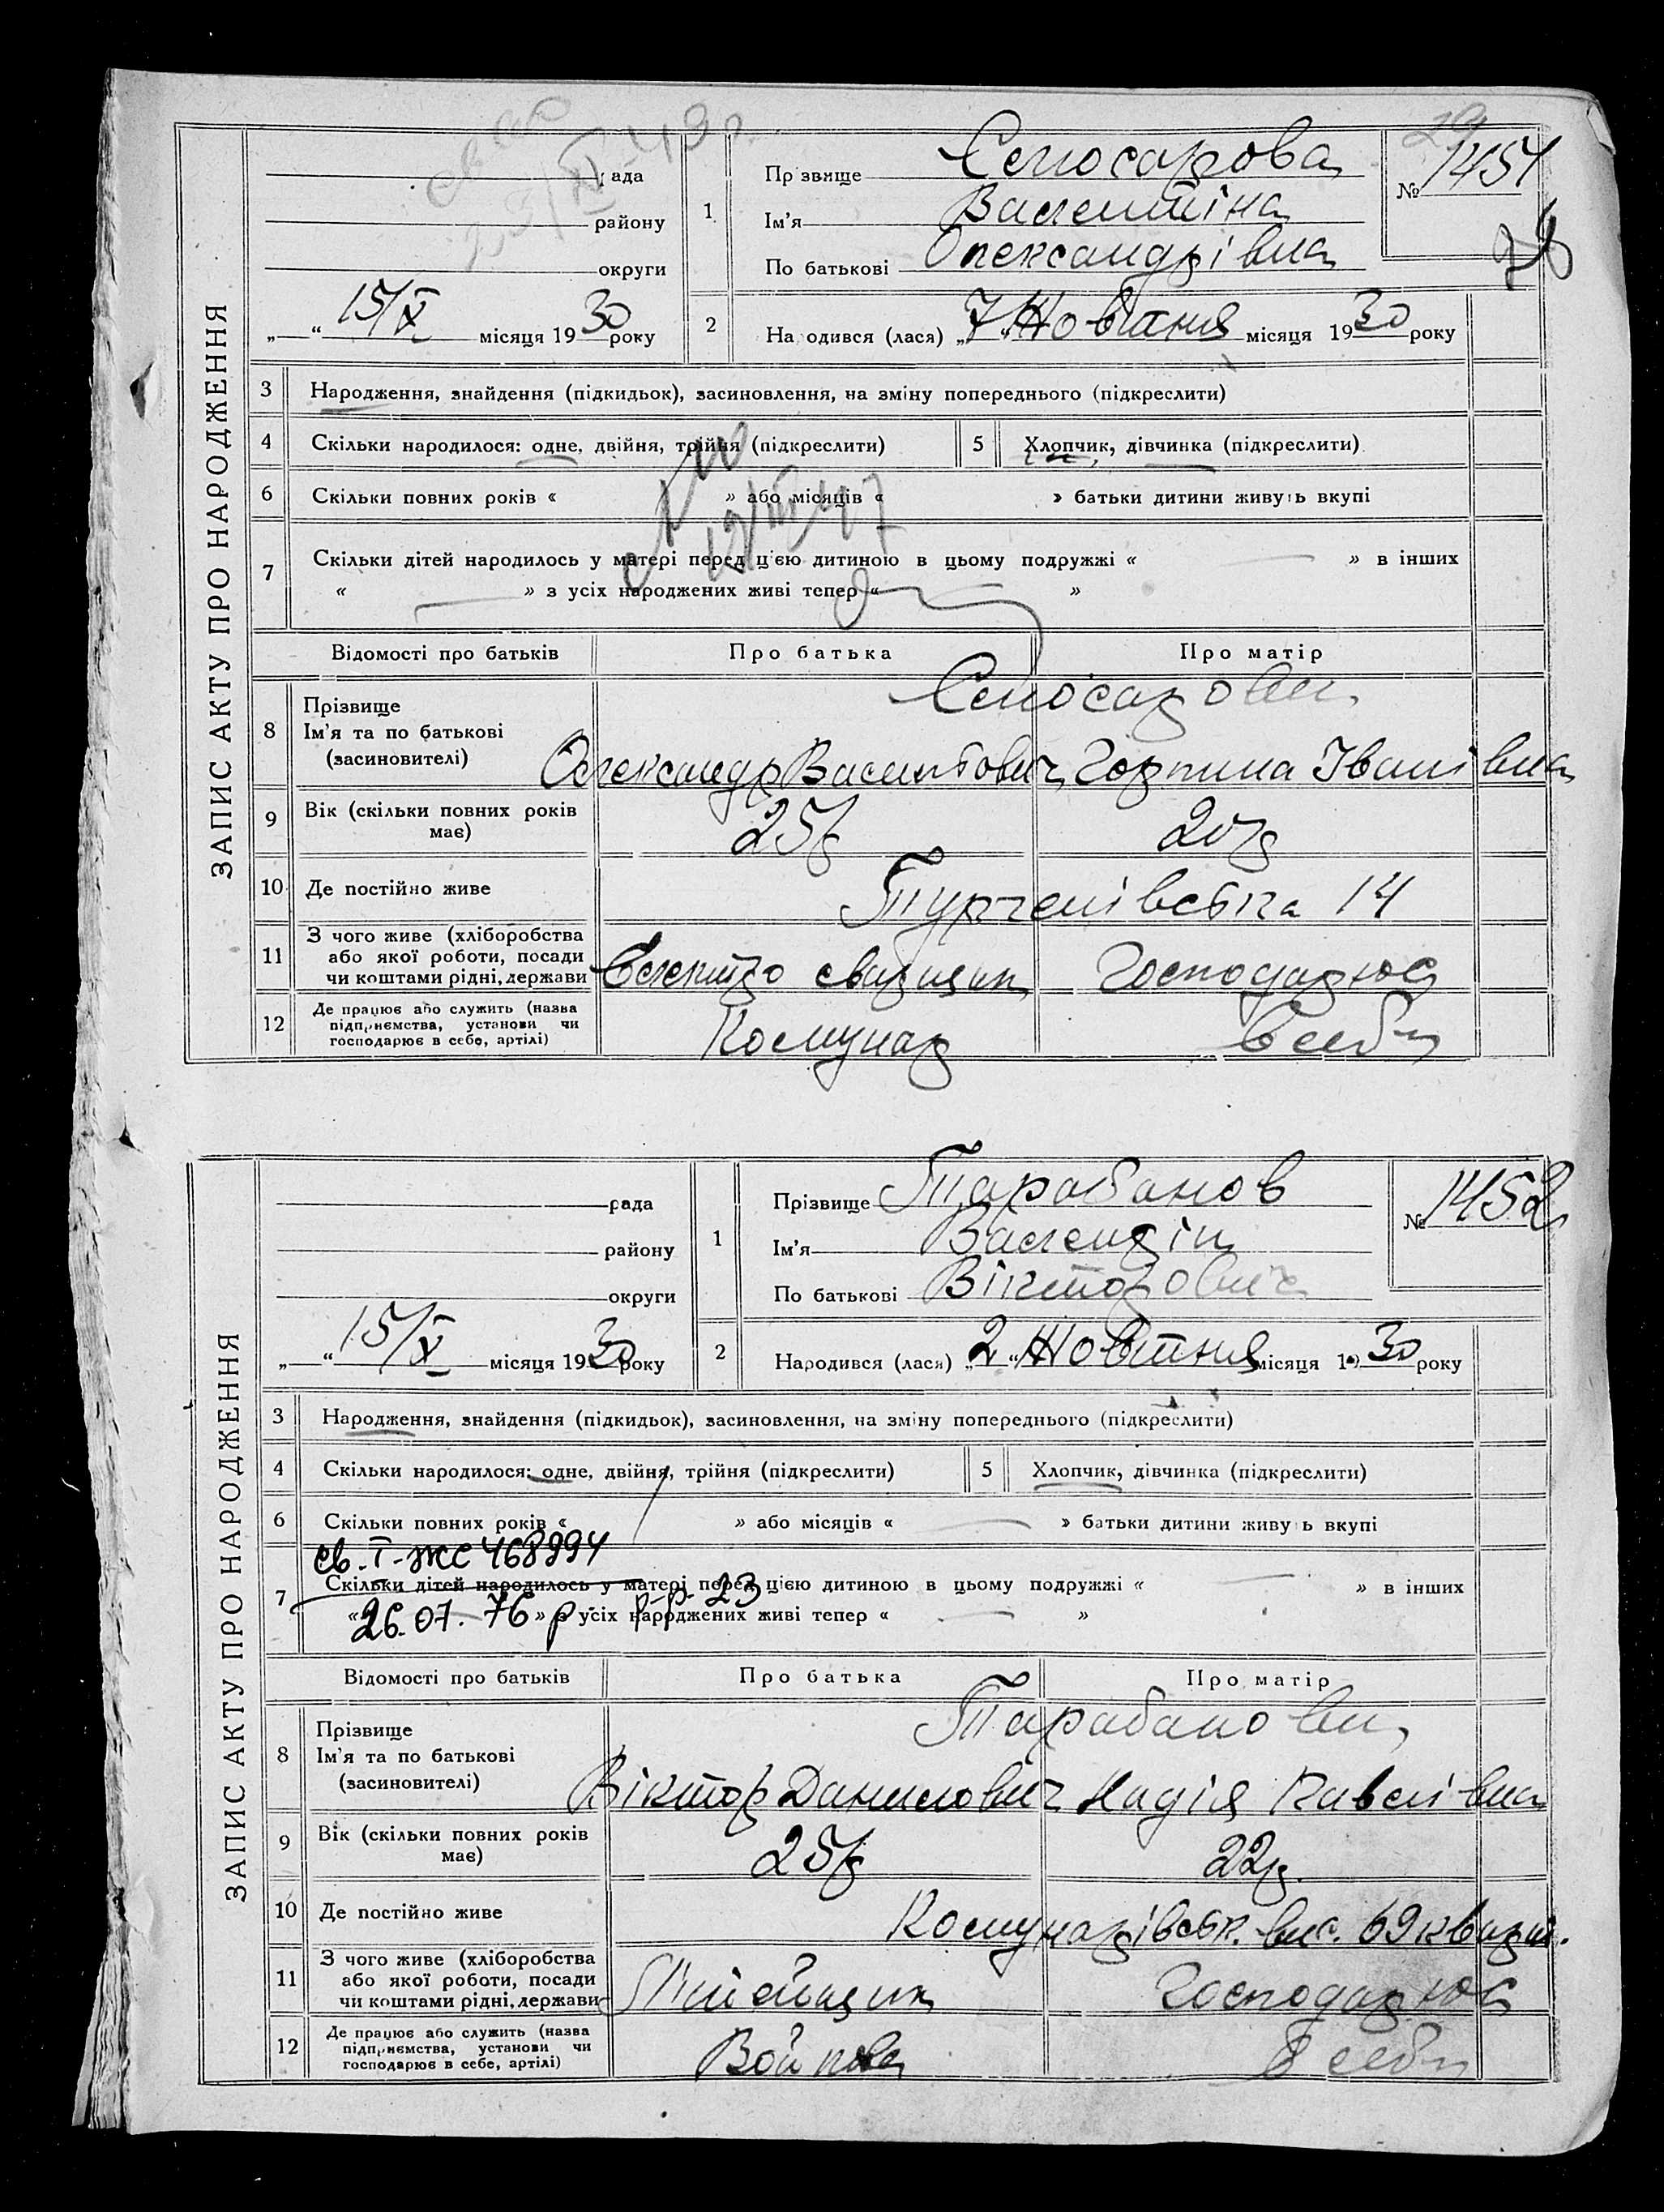 ЗАПИС АКТУ ПРО НАРОДЖЕННЯ
рада
району
округи
„ “ 15/X місяця 1930 року
1
Прізвище Слюсарова
Ім'я Валентіна
По батькові Олександрівна
№ 1451
2 Народився (лася) „7“ Жовтня місяця 1930 року
3 Народження, знайдення (підкидьок), засиновлення, на зміну попереднього (підкреслити)
4 Скільки народилося: одне, двійня, трійня (підкреслити) 5 Хлопчик, дівчинка (підкреслити)
6 Скільки повних років « » або місяців « » батьки дитини живуть вкупі
7 Скільки дітей народилось у матері перед цією дитиною в цьому подружжі « » в інших
« » з усіх народжених живі тепер « »
Відомості про батьків Про батька Про матір
8 Прізвище
Ім'я та по батькові
(засиновителі)
Слюсарови
Олександр Горпина Іванівна
9 Вік (скільки повних років
має)
25р 20р
10 Де постійно живе
14
11 З чого живе (хліборобства
або якої роботи, посади
чи коштами рідні, держави
Електро сварщик Господарює
12 Де працює або служить (назва
підприємства, установи чи
господарює в себе, артілі)
Комунар в себе
ЗАПИС АКТУ ПРО НАРОДЖЕННЯ
рада
району
округи
„ “ 15/X місяця 1930 року
1
Прізвище Тарабанов
Ім'я Валендін
По батькові Вікторович
№ 1452
2 Народився (лася) „2“ Жовтня місяця 1930 року
3 Народження, знайдення (підкидьок), засиновлення, на зміну попереднього (підкреслити)
4 Скільки народилося: одне, двійня, трійня (підкреслити) 5 Хлопчик, дівчинка (підкреслити)
6 Скільки повних років « » або місяців « » батьки дитини живуть вкупі
св. I-ЖС 468994
7 Скільки дітей народилось у матері перед цією дитиною в цьому подружжі « » в інших
р-р. 23
26.07.76 р
« » з усіх народжених живі тепер « »
Відомості про батьків Про батька Про матір
8 Прізвище
Ім'я та по батькові
(засиновителі)
Тарабанови
Віктор Данилович Надія Павлівна
9 Вік (скільки повних років
має)
25р 22р.
10 Де постійно живе
Комунарівськ. вис. 69 кварт.
11 З чого живе (хліборобства
або якої роботи, посади
чи коштами рідні, держави
Господарює
12 Де працює або служить (назва
підприємства, установи чи
господарює в себе, артілі)
Войкова В себе